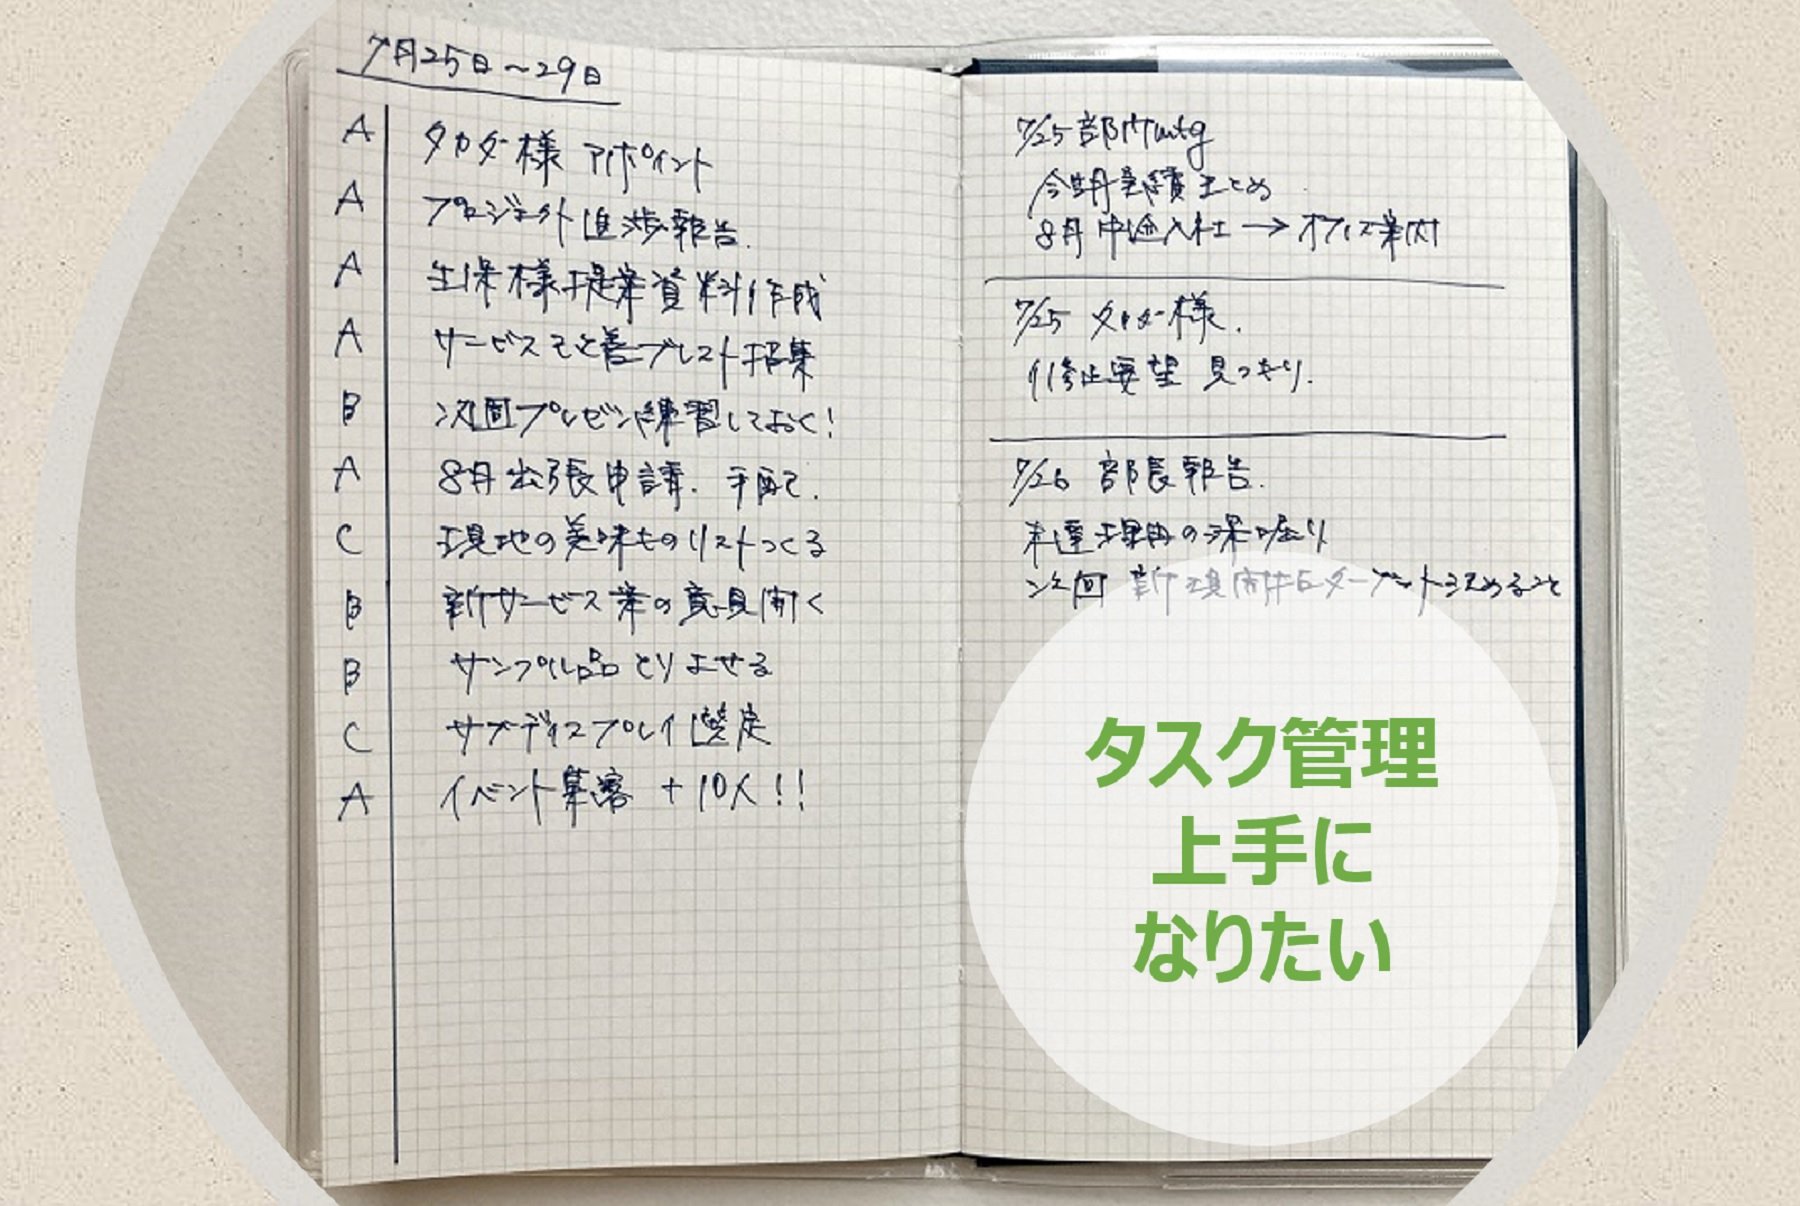 7月25日〜29日
A タカダ様 アポイント
A プロジェクト進捗報告.
A 生保様提案資料作成
A サービス改善ブレスト招集
B 次回プレゼン練習しておく!
A 8月出張申請. 手配.
C 現地の美味ものリストつくる
B 新サービス案の意見聞く
B サンプル品とりよせる
C サブディスプレイ選定
A イベント集客 +10人!!
7/25 部内mtg
今期業績まとめ
8月中途入社→オフィス案内
7/25 タカダ様.
修正要望 見つもり.
7/26 部長報告.
未達理由の深堀り
次回 新規開拓ターゲット決めること
タスク管理
上手に
なりたい